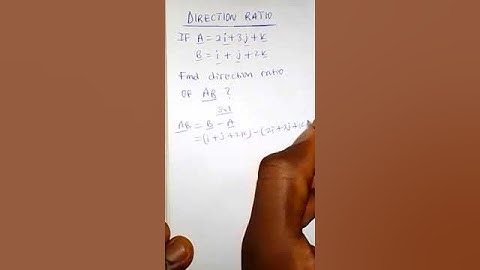 DIRECTION RATIO
IF A = 2i+3j+k
B = i + j +2k
Find direction ratio
OF AB ?
Sol
AB = B - A
= (i + j +2k) - (2i+3j+k